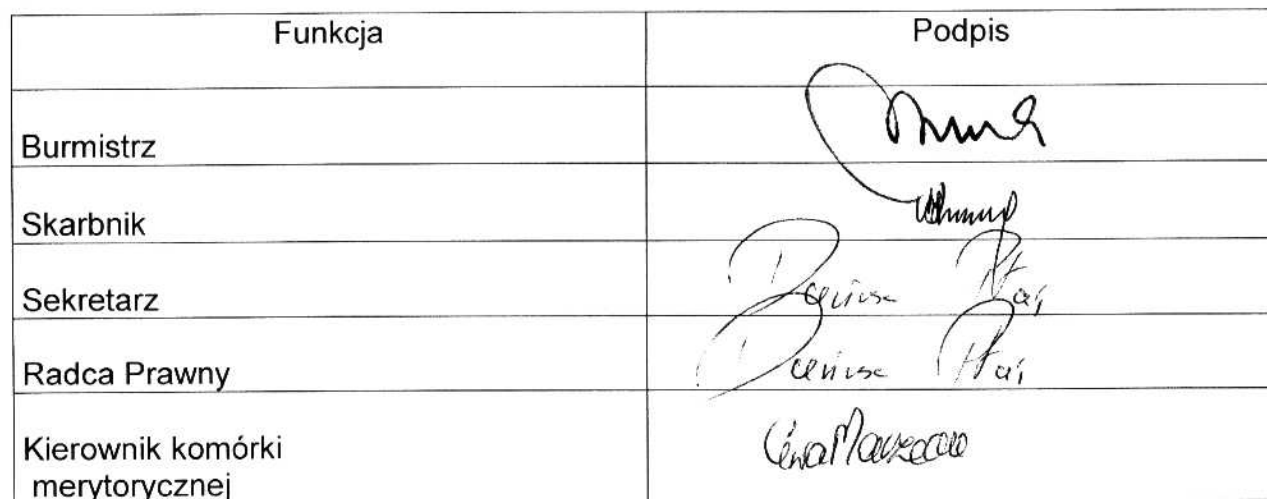 Funkcja Podpis
Burmistrz
Skarbnik
Sekretarz Dariusz
Radca Prawny Dariusz
Kierownik komórki Ewa
merytorycznej